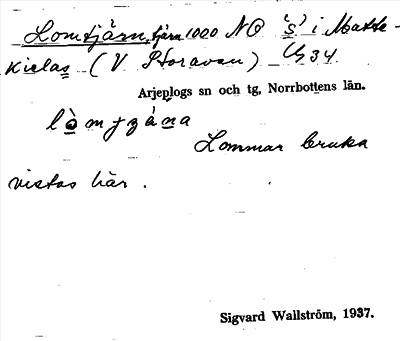 Lomtjärn, tjärn 1000 NO 's' i Matte-
kielas (V Storavan)
Arjeplogs sn och tg, Norrbottens län.
Lommar bruka
vistas här.
Sigvard Wallström, 1937.